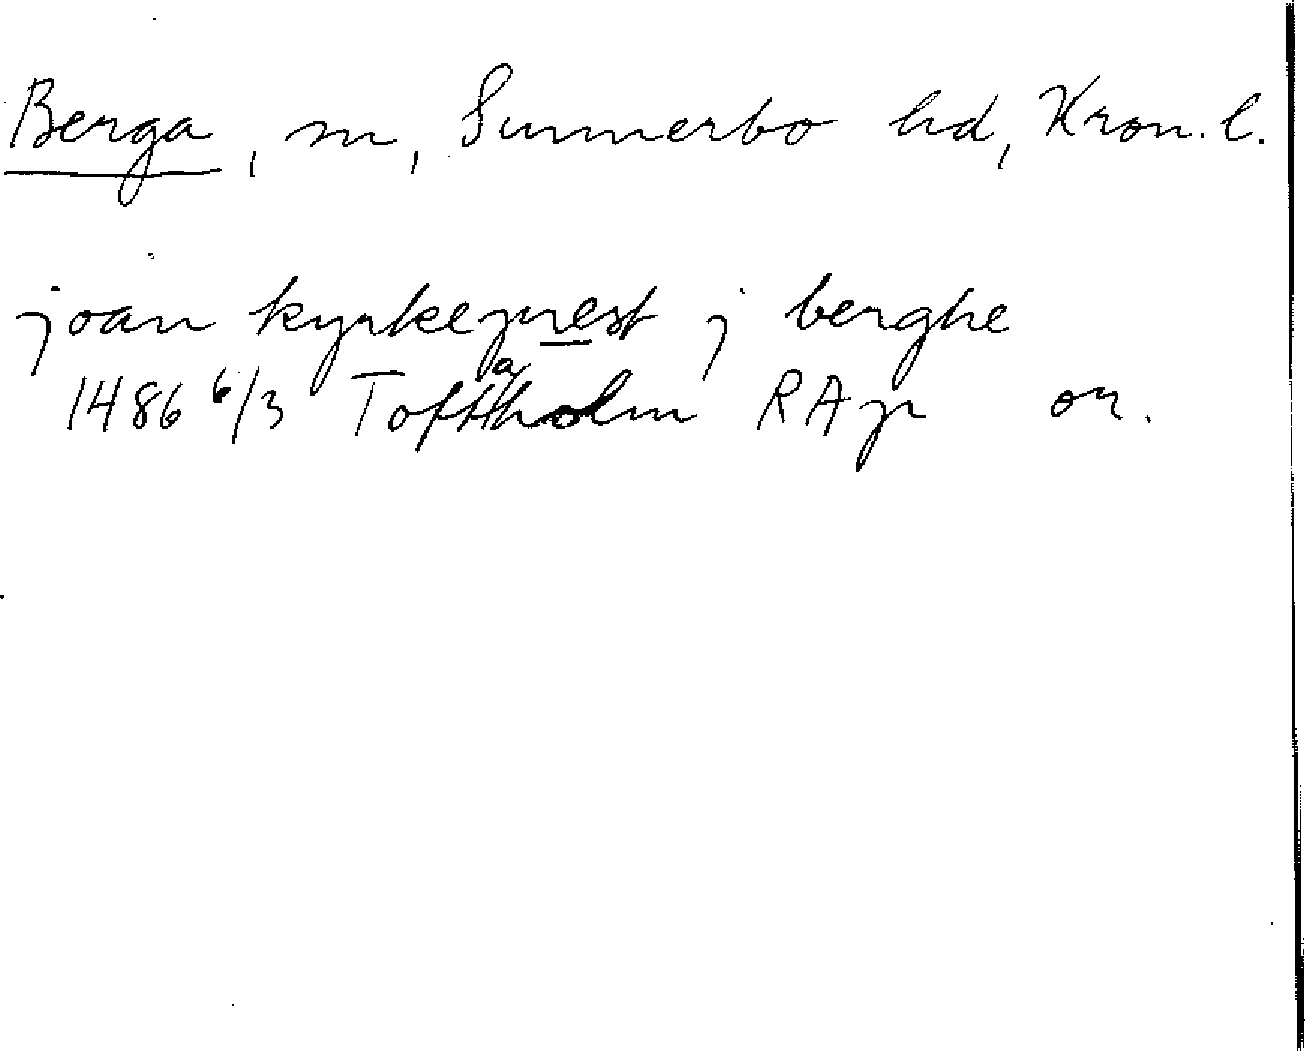 Berga, sn, Sunnerbo hd, Kron. l.
joan kyrkeprest j berghe
1486 6/3 Toftaholm RAp or.